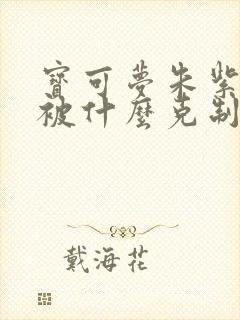 寶可夢朱紫
被什麼克制
戴海花